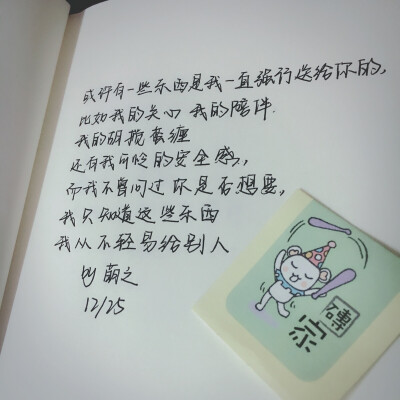 或许有一些东西是我一直强行送给你的,
比如我的关心 我的陪伴.
我的胡搅蛮缠
还有我可怜的安全感,
而我不曾问过你是否想要,
我只知道这些东西
我从不轻易给别人
by 萌之
12/25